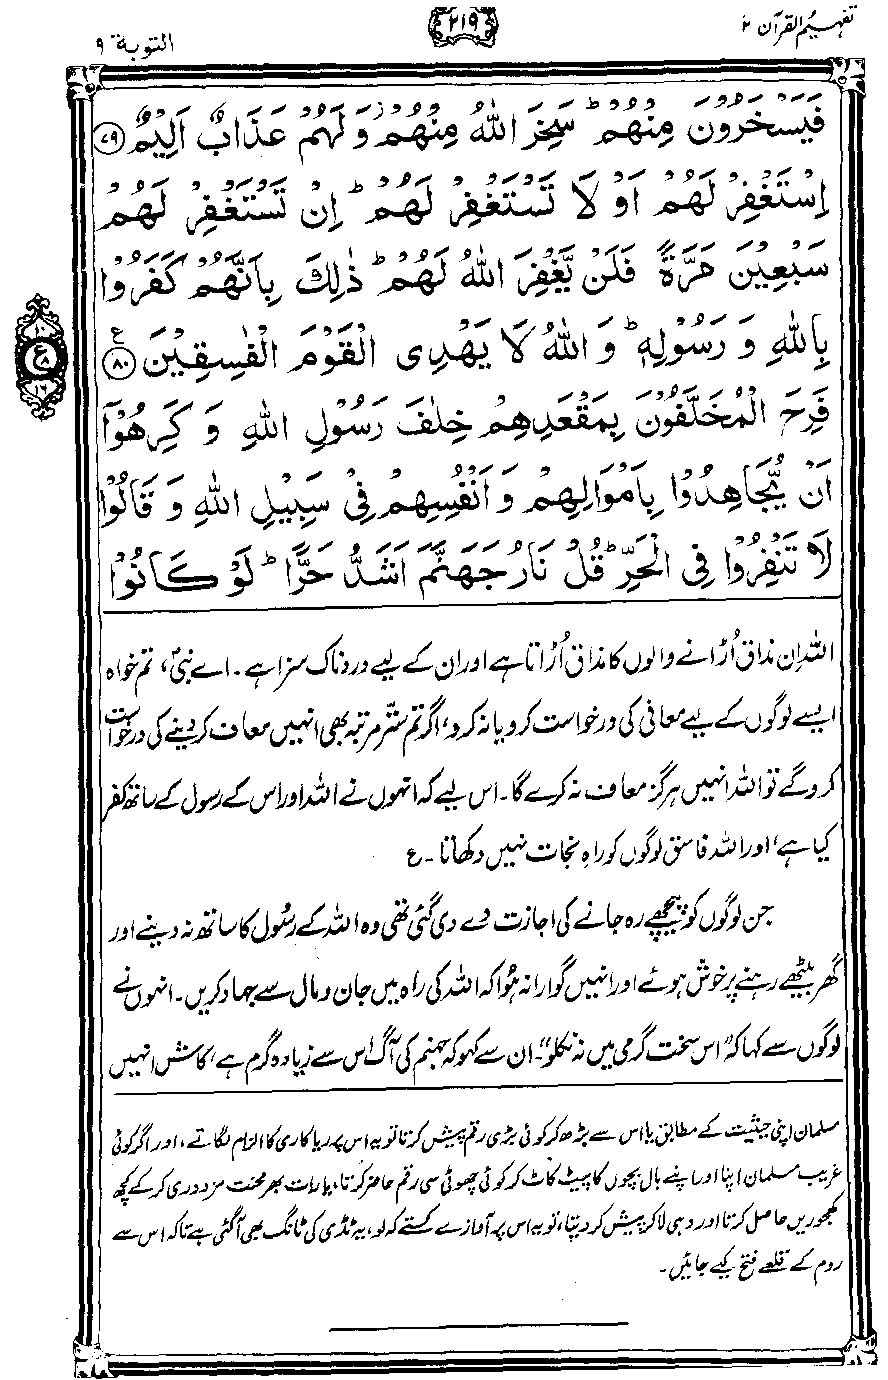 تفہیم القرآن ۲
۲۱۹
التوبۃ ۹
فَيَسْخَرُوْنَ مِنْهُمْ ؕ سَخِرَ اللّٰهُ مِنْهُمْ ؗ وَلَهُمْ عَذَابٌ اَلِيْمٌ ﴿۷۹﴾
اِسْتَغْفِرْ لَهُمْ اَوْ لَا تَسْتَغْفِرْ لَهُمْ ؕ اِنْ تَسْتَغْفِرْ لَهُمْ
سَبْعِيْنَ مَرَّةً فَلَنْ يَّغْفِرَ اللّٰهُ لَهُمْ ؕ ذٰلِكَ بِاَنَّهُمْ كَفَرُوْا
بِاللّٰهِ وَ رَسُوْلِهٖ ؕ وَ اللّٰهُ لَا يَهْدِى الْقَوْمَ الْفٰسِقِيْنَ ﴿۸۰﴾ ع
۱۰
ع ۸
۱۶
فَرِحَ الْمُخَلَّفُوْنَ بِمَقْعَدِهِمْ خِلٰفَ رَسُوْلِ اللّٰهِ وَ كَرِهُوْٓا
اَنْ يُّجَاهِدُوْا بِاَمْوَالِهِمْ وَ اَنْفُسِهِمْ فِىْ سَبِيْلِ اللّٰهِ وَ قَالُوْا
لَا تَنْفِرُوْا فِى الْحَرِّ ؕ قُلْ نَارُ جَهَنَّمَ اَشَدُّ حَرًّا ؕ لَوْ كَانُوْا
اللہ اِن مذاق اُڑانے والوں کا مذاق اُڑاتا ہے اور ان کے لیے دردناک سزا ہے۔ اے نبیؐ، تم خواہ
ایسے لوگوں کے لیے معافی کی درخواست کرو یا نہ کرو، اگر تم ستّر مرتبہ بھی انہیں معاف کر دینے کی درخواست
کرو گے تو اللہ انہیں ہرگز معاف نہ کرے گا۔ اس لیے کہ انہوں نے اللہ اور اس کے رسول کے ساتھ کفر
کیا ہے، اور اللہ فاسق لوگوں کو راہِ نجات نہیں دکھاتا۔ ع
جن لوگوں کو پیچھے رہ جانے کی اجازت دے دی گئی تھی وہ اللہ کے رسُول کا ساتھ نہ دینے اور
گھر بیٹھے رہنے پر خوش ہوئے اور انہیں گوارا نہ ہُوا کہ اللہ کی راہ میں جان و مال سے جہاد کریں۔ انہوں نے
لوگوں سے کہا کہ ”اس سخت گرمی میں نہ نکلو“۔ ان سے کہو کہ جہنم کی آگ اس سے زیادہ گرم ہے، کاش انہیں
مسلمان اپنی حیثیت کے مطابق یا اس سے بڑھ کر کوئی بڑی رقم پیش کرتا تو یہ اس پر ریاکاری کا الزام لگاتے، اور اگر کوئی
غریب مسلمان اپنا اور اپنے بال بچوں کا پیٹ کاٹ کر کوئی چھوٹی سی رقم حاضر کرتا، یا رات بھر محنت مزدوری کر کے کچھ
کھجوریں حاصل کرتا اور وہی لا کر پیش کر دیتا، تو یہ اس پر آوازے کستے کہ لو، یہ ٹڈی کی ٹانگ بھی آگئی ہے تاکہ اس سے
روم کے قلعے فتح کیے جائیں۔